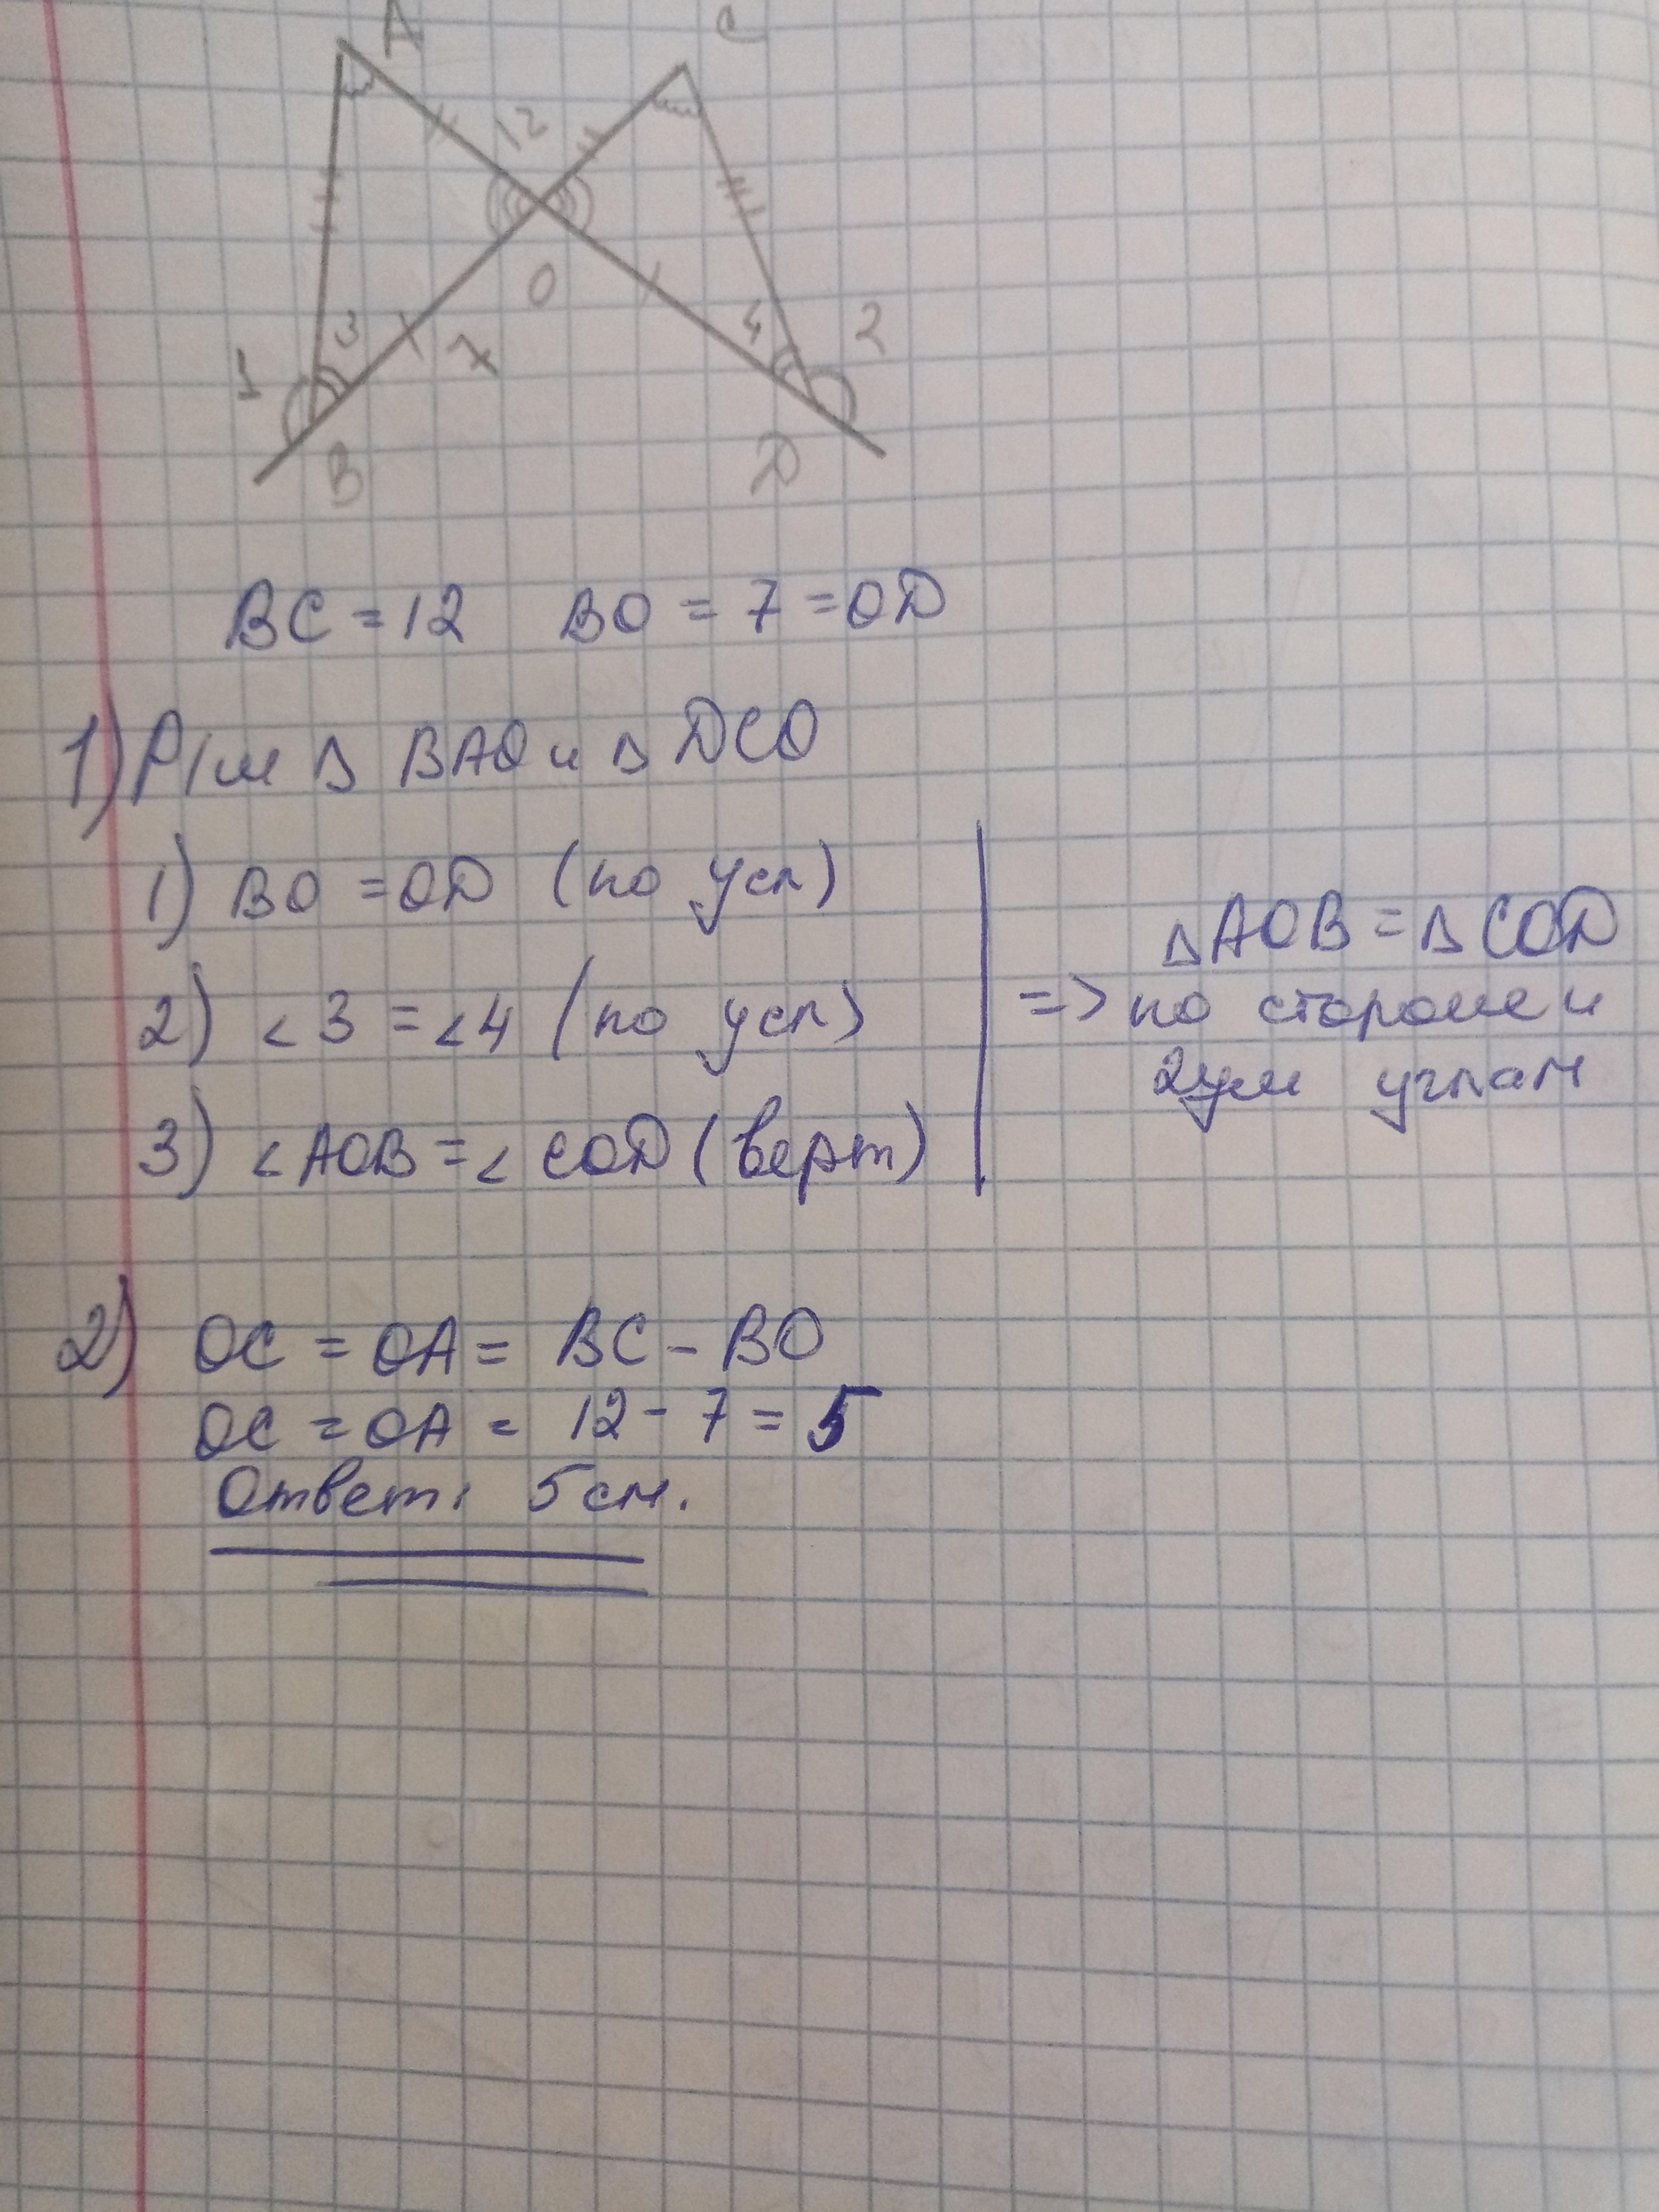 A
C
12
O
3
7
4
2
1
B
D
BC = 12 BO = 7 = OD
1) Р/м Δ BAO и Δ DCO
1) BO = OD (по усл)
2) < 3 = < 4 (по усл)
3) < AOB = < COD (верт)
Δ AOB = Δ COD
=> по стороне и
2ум углам
2) OC = OA = BC - BO
OC = OA = 12 - 7 = 5
Ответ: 5 см.